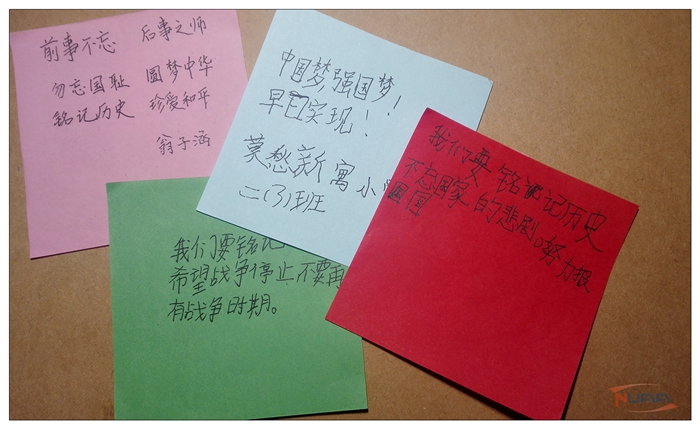 前事不忘 后事之师
勿忘国耻 圆梦中华
铭记历史 珍爱和平
翁子涵
中国梦,强国梦!
早日实现!
莫愁新寓小
二(3)班
我们要铭记历史
不忘国家的悲剧。努力报
国
我们要铭记
希望战争停止不要再
有战争时期。
NUAA